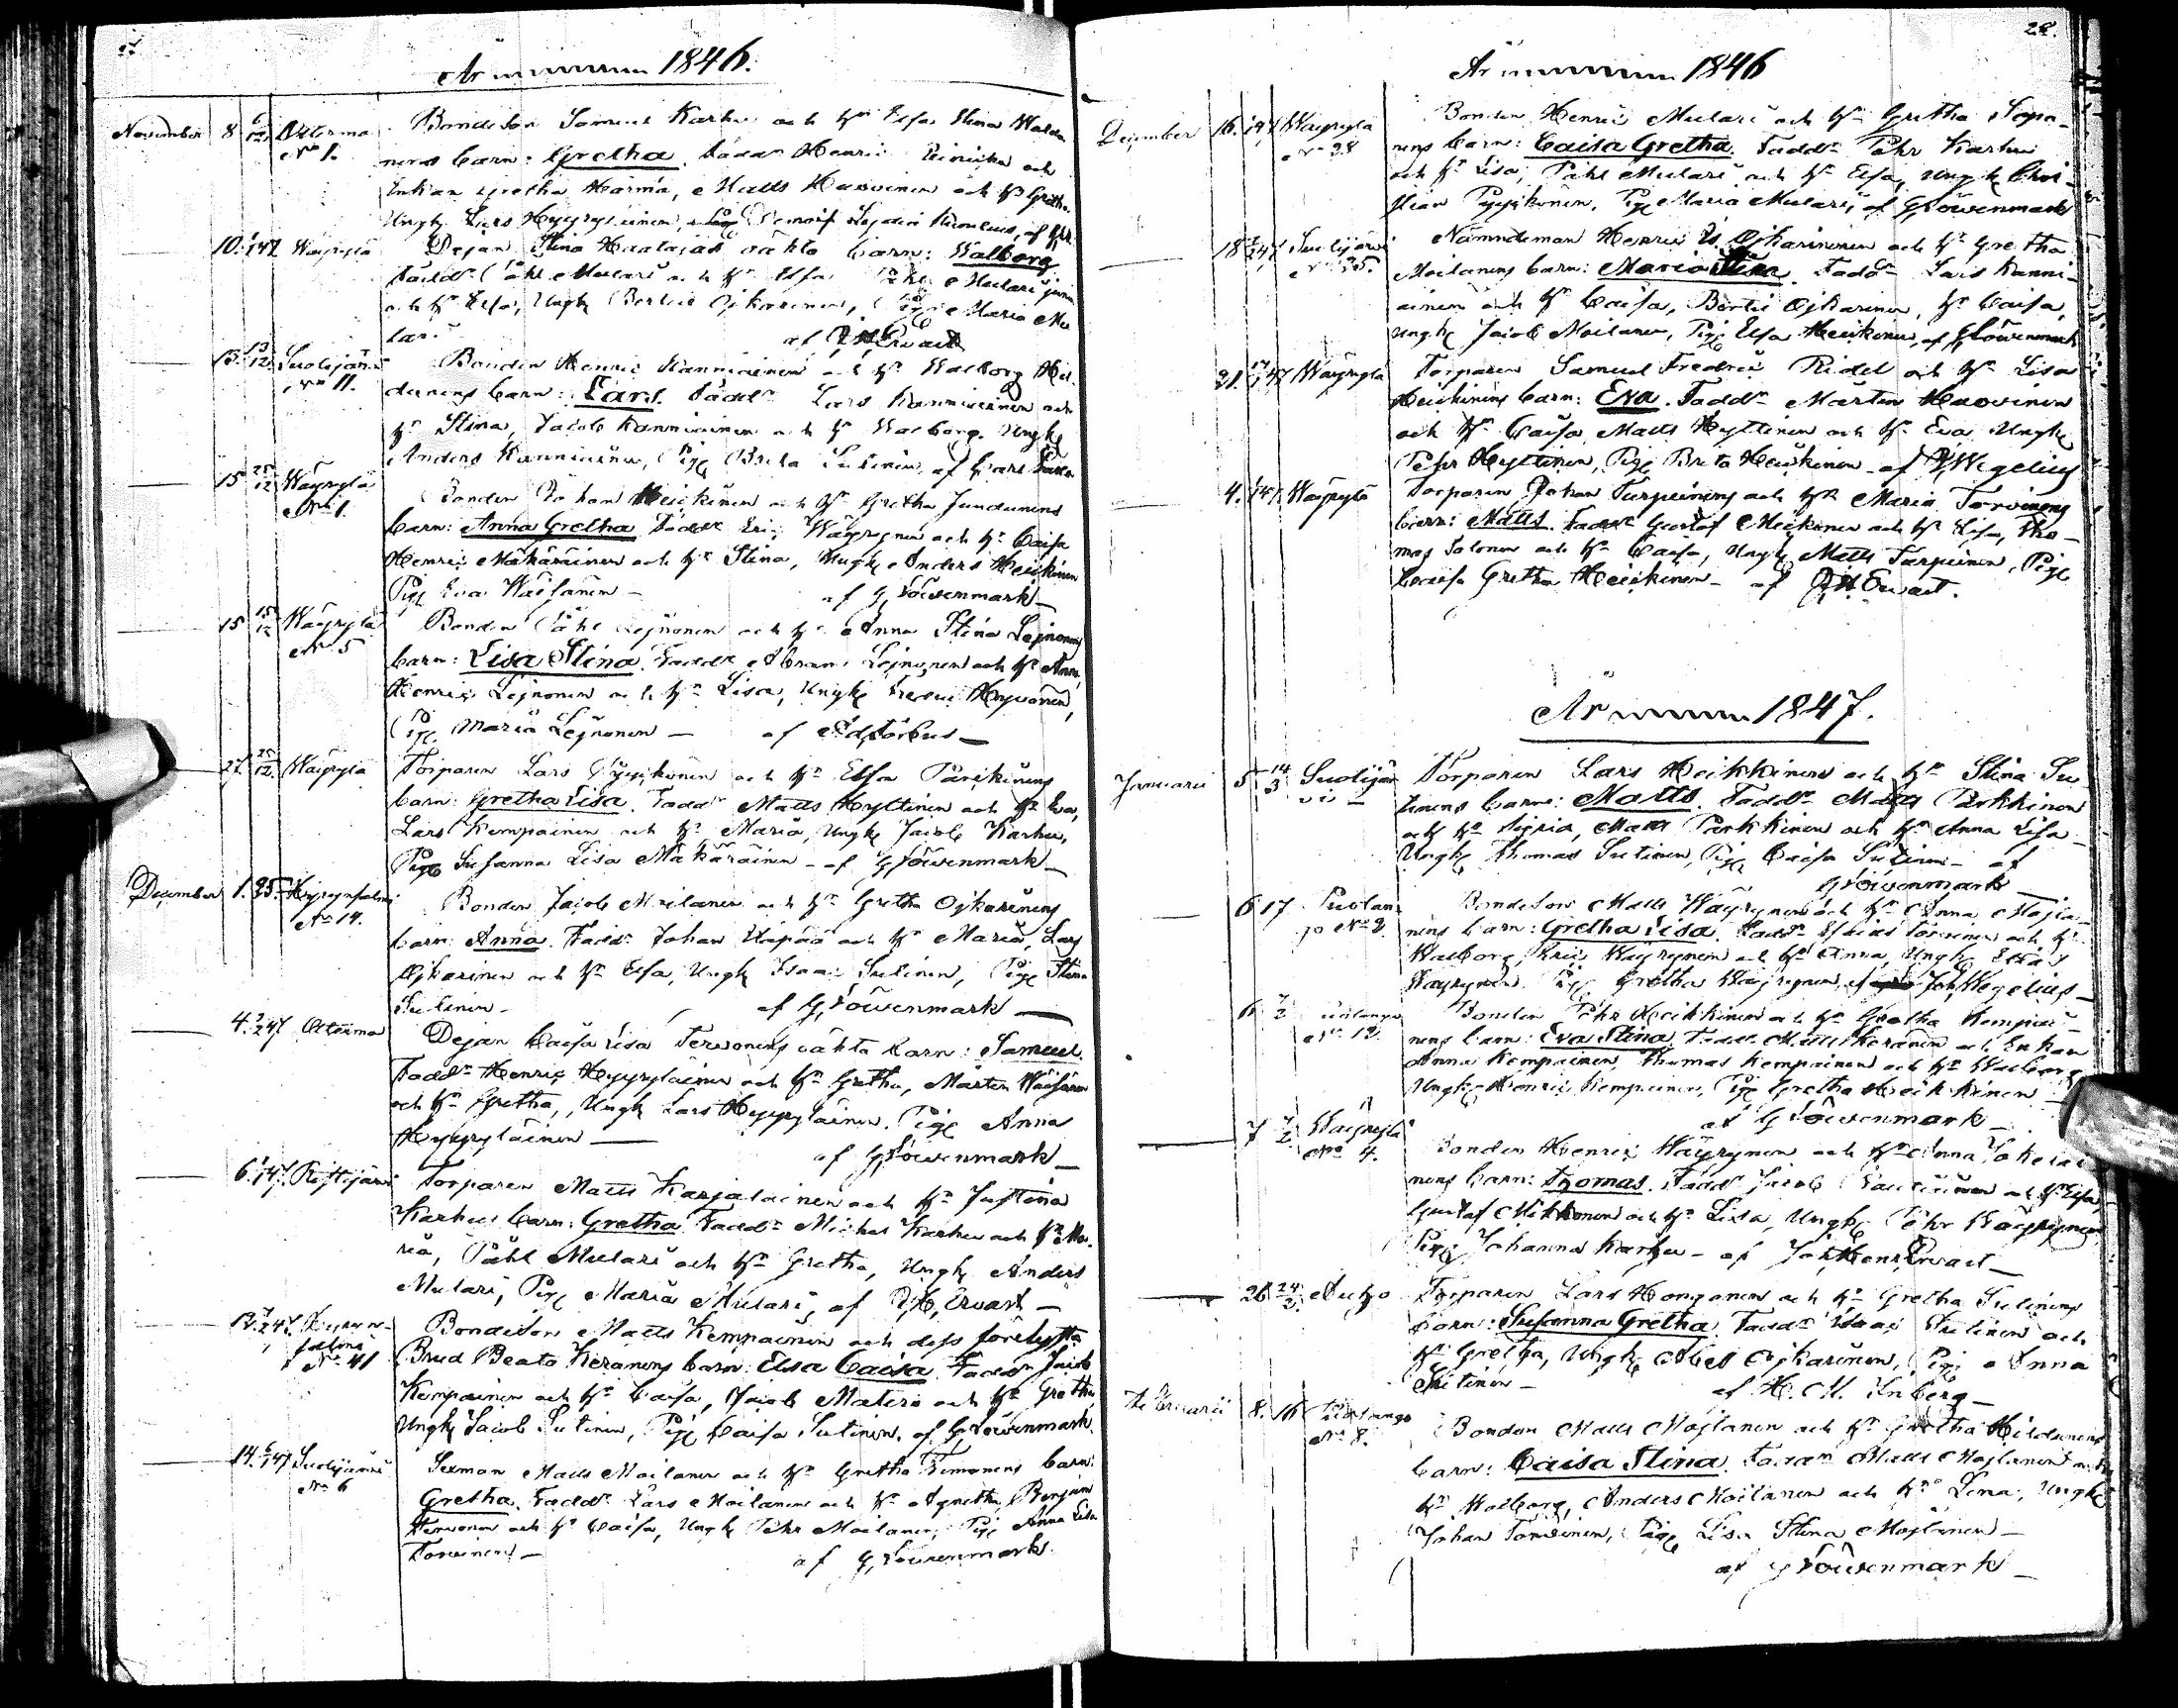 27
År 1846.
November 8 6/12 Osterma Bondeson Samuel Karhu och hu Elsa Stina Walda
No 1. nens barn: Gretha. Faddr Henric Heinicka och
Enkan Gretha Härmä, Matts Huovinen och hu Gretha
Ungk Lars Hyyryläinen, af
10. 1/1 47 Wäyrylä Pejan Stina Haatajas oäkta barn: Walborg
Faddr Påhl Mulari och hu Elsa Påhl Mulari junior
och hu Elsa, Ungk Bertil Ojkarinen, Pig Maria Mu
lari af J H Ervast
13. 13/12 Suolijärvi Bonden Henric Kanniainen och hu Walborg Hil
No 11. dunens barn: Lars. Faddr Lars Kanniainen och
hu Stina, Jacob Kanniainen och hu Walborg. Ungk
Anders Kanniainen, Pig Brita Sutinen, af
15 25/12 Wäyrylä Bonden Johan Heickinen och hu Gretha Jundunens
No 1. barn: Anna Gretha Faddr Eric Wäyrynen och hu Caisa
Henric Mäkäräinen och hu Stina, Ungk Anders Heickinen
Pig Eva Wäisänen – af G Löwenmark –
15 15/12 Wäyrylä Bonden Påhl Lejnonen och hu Anna Stina Lejnonens
No 5 barn: Lisa Stina. Faddr Abram Lejnonen och hu Anna,
Henric Lejnonen och hu Lisa, Ungk Hyvönen,
Pig. Maria Lejnonen – af
27. 25/12. Wäyrylä Torparen Lars Pyykkönen och hu Elsa Pärikänens
barn: Gretha Lisa. Faddr Matts Hyttinen och hu Eva,
Lars Kempainen och hu Maria, Ungk Jacob Karhu,
Pig Susanna Lisa Mäkäräinen – af G Löwenmark –
December 1. 25. Hyrynsalmi Bonden Jacob Moilanen och hu Gretha Ojkarinens
No 14. barn: Anna. Faddr Johan Uapää och hu Maria, Lars
Ojkarinen och hu Elsa, Ungk Isaac Sutinen, Pig Stina
Sutinen – af G Löwenmark –
4. 2/2 47 Osterma Pejan Caisa Lisa Tervonens oäkta barn: Samuel.
Faddr Henric Hyyryläinen och hu Gretha, Mårten Wäisänen
och hu Gretha, Ungk Lars Hyyryläinen. Pig Anna
Hyyryläinen – af G Löwenmark –
6. 1/1 47. Ristijärvi Torparen Matts Karjalainen och hu Justina
Karhus barn: Gretha Faddr Michel Karhu och hu Ma-
ria, Påhl Mulari och hu Gretha, Ungk Anders
Mulari, Pig Maria Mulari, af J H, Ervast –
12. 7/2 47 Hyryn- Bondeson Matts Kempainen och dess förelyfta
salmi Brud Beata Keränens barn: Elsa Caisa Faddr Jacob
No 41 Kempainen och hu Caisa, Jacob Matero och hu Gretha
Ungk Jacob Sutinen, Pig Caisa Sutinen, af G Löwenmark.
14. 6/1 47 Suolijärvi Sexman Matts Moilanen och hu Gretha Kemonens barn:
No 6 Gretha. Faddr Lars Moilanen och hu Agnetha, Benjam
Tervonen och hu Caisa, Ungk Pehr Moilanen, Pig Anna Lisa
Torvinen – af G, Löwenmark.
28.
År 1846
December 16. Wäyrylä Bonden Henric Mulari och hu Gretha Sopa-
No 28 nens barn: Caisa Gretha. Faddr Pehr Karhu
och hu Lisa, Påhl Mulari och hu Elsa, Ungk Chri-
stian Pyykkönen, Pig Maria Mulari, af G Löwenmark
18 Suolijärvi Nämndeman Henric Ojkarinen och hu Gretha
Moilanens barn: Maria Stina. Faddr Lars Kanni-
ainen och hu Caisa, Bertil Ojkarinen, hu Caisa,
Ungk Jacob Moilanen, Pig Elsa Heickinen, af G Löwenmark
21. 47 Wäyrylä Torparen Samuel Fredric Ridel och hu Lisa
Heickinens barn: Eva. Faddr Mårten Huovinen
och hu Caisa, Matts Hyttinen och hu Eva Ungk
Pehr Hyttinen, Pig Brita Heickinen – af J Wegelius
4. 47. Wäyrylä Torparen Johan Turpeinens och hu Maria Torvinens
barn: Matts. Faddr Gustaf Meickinen och hu Lisa, Tho-
mas Salonen och hu Caisa, Ungk Matts Turpeinen, Pig
Caisa Gretha Heickinen – af J H Ervast.
År 1847.
Januarii 5 14/3 Suolijärvi Torparen Lars Heikkinens och hu Stina Su
tinens barn: Matts. Faddr Matts Parkkinen
och hu Sigria, Matts Parkkinen och hu Anna Lisa –
Ungk Thomas Sutinen, Pig Caisa Sutinen – af
G Löwenmark –
6 17 Puolan Bondeson Matts Wäyrynen och hu Anna Mojla-
go No 2 nens barn: Gretha Lisa. Faddr Torvinen och hu
Walborg, Eric Wäyrynen och hu Anna, Ungk Elias
Wäyrynen. Pig Gretha Wäyrynen, af Joh, Wegelius –
6 7/2 Puolango Bonden Pehr Heikkinen och hu Gretha Kempai-
No 12. nens barn: Eva Stina. Faddr Matts Keränen och Enkan
Anna Kempainen, Thomas Kempainen och hu Walborg
Ungk Henric Kempainen, Pig Gretha Heikkinen –
af G Löwenmark –
7 7/2 Wäyrylä Bonden Henric Wäyrynen och hu Anna
No 4. nens barn: Thomas. Faddr Jacob och hu Elsa,
Gustaf Mikkonen och hu Lisa, Ungk Pehr Wäyrynen
Pig Johanna Karhu – af Joh Henr, Ervast –
26 24/2 Auho Torparen Lars Honganen och hu Gretha Sutinens
barn: Susanna Gretha. Faddr Isaac Sutinen och
hu Gretha, Ungk Abel Ojkarinen, Pig Anna
Sutinen – af H. M. Inberg –
Februarii 8. 16 Puolango Bonden Matts Mojlanen och hu Gretha Hildunens
No 8. barn: Caisa Stina. Faddr Matts Mojlanen och
hu Walborg, Anders Moilanen och hu Lena, Ungk
Johan Tornainen, Pig Lisa Stina Mojlanen –
af G Löwenmark –